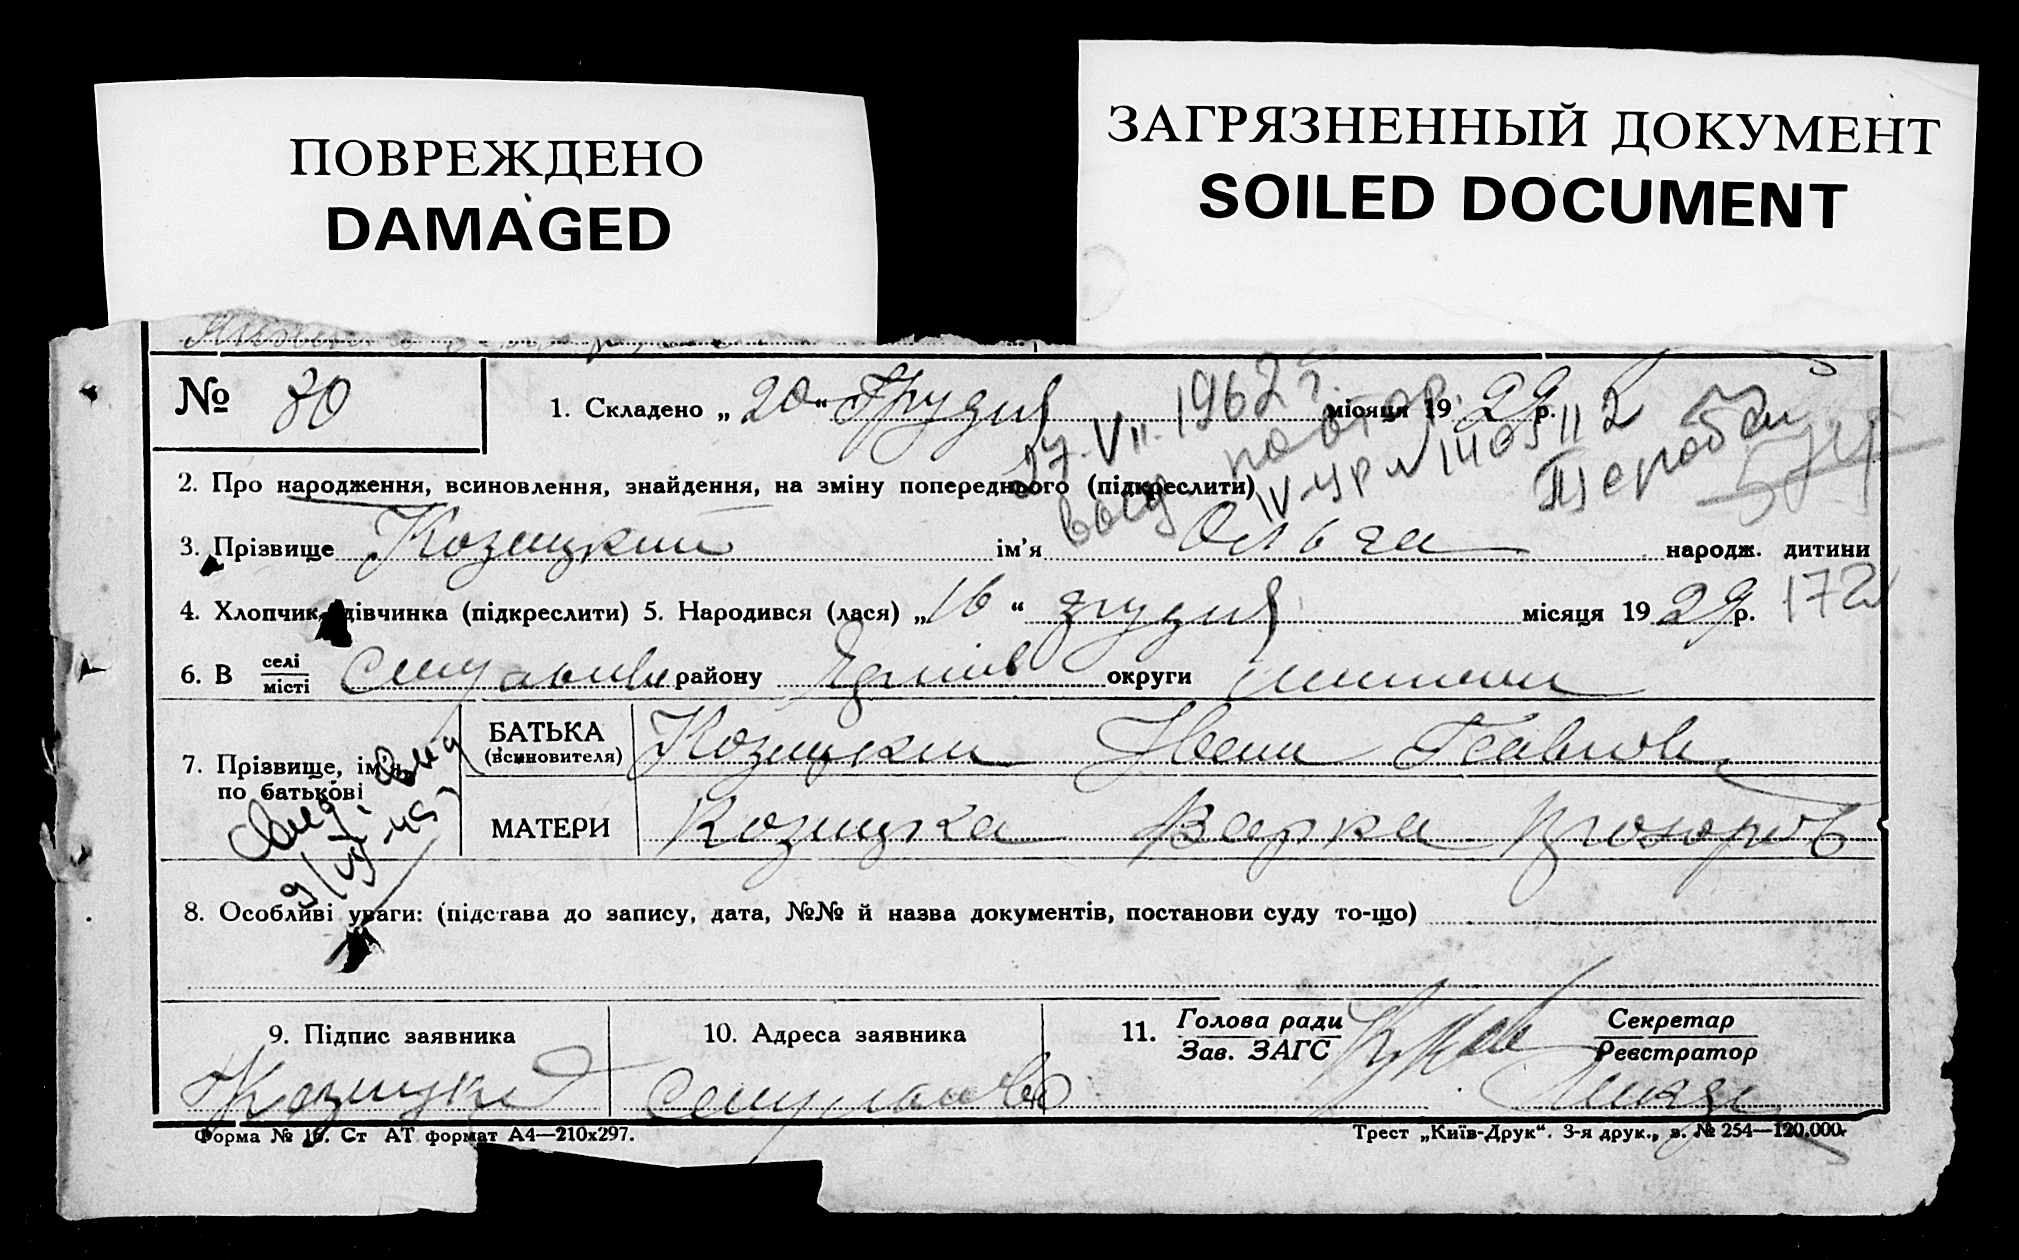 ПОВРЕЖДЕНО
DAMAGED
ЗАГРЯЗНЕННЫЙ ДОКУМЕНТ
SOILED DOCUMENT
№ 80 1. Складено „ 20 “ Грудня місяця 19 29 р.
27.VII.1962 г. повтор.
IV-УР
2. Про народження, всиновлення, знайдення, на зміну попереднього (підкреслити)
3. Прізвище Козицкий ім'я Ольга народж. дитини
4. Хлопчик, дівчинка (підкреслити) 5. Народився (лася) „ 16 “ грудня місяця 19 29 р. 172
6. В селі місті району округи
7. Прізвище, ім'я, по батькові
БАТЬКА (всиновителя) Козицкий Иван Павлов
МАТЕРИ Козицка Варка Прохоров
8. Особливі уваги: (підстава до запису, дата, №№ й назва документів, постанови суду то-що)
9. Підпис заявника 10. Адреса заявника 11. Голова ради Зав. ЗАГС Секретар Реєстратор
Козицкий
Форма № 16. Ст АТ формат А4—210х297. Трест „Київ-Друк“. 3-я друк., з. № 254—120.000.